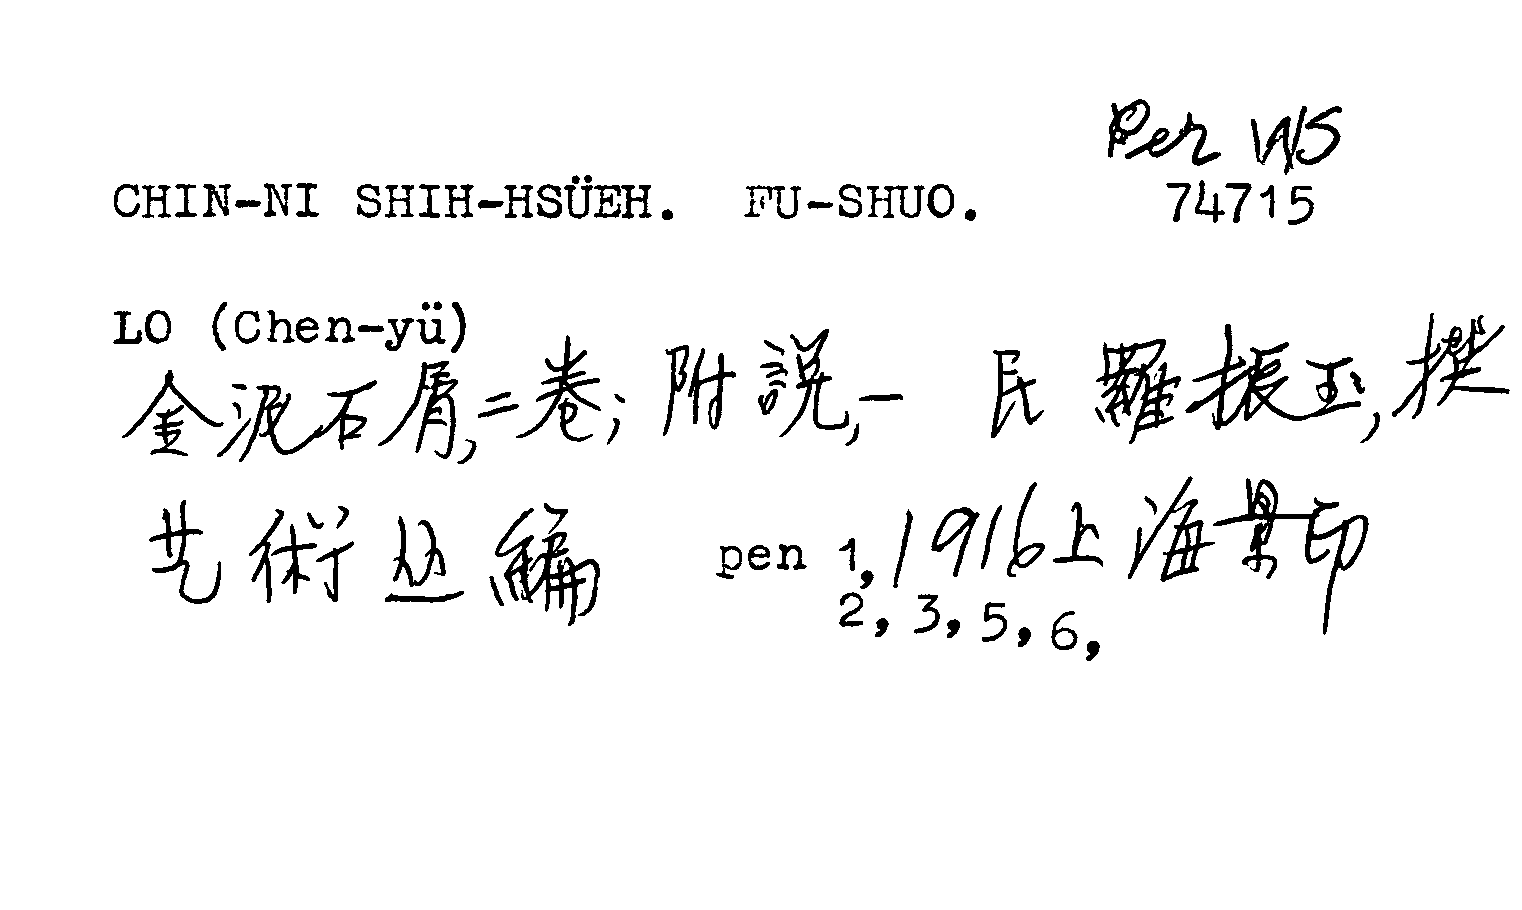 Per WS
CHIN-NI SHIH-HSÜEH. FU-SHUO. 74715
LO (Chen-yü)
金泥石屑,二卷; 附說,一 民 羅振玉,撰
艺術丛編 pen 1, 1916上海景印
2, 3, 5, 6,